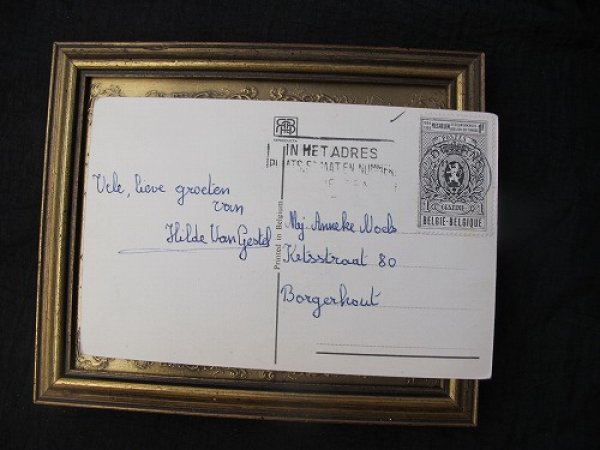 Vele, lieve groeten
van
Hilde Van Gestel
Printed in Belgium
IN HET ADRES
PLAATS STRAAT EN NUMMER
Mej Anneke Noels
Ketsstraat 80
Borgerhout
1F
BELGIE-BELGIQUE